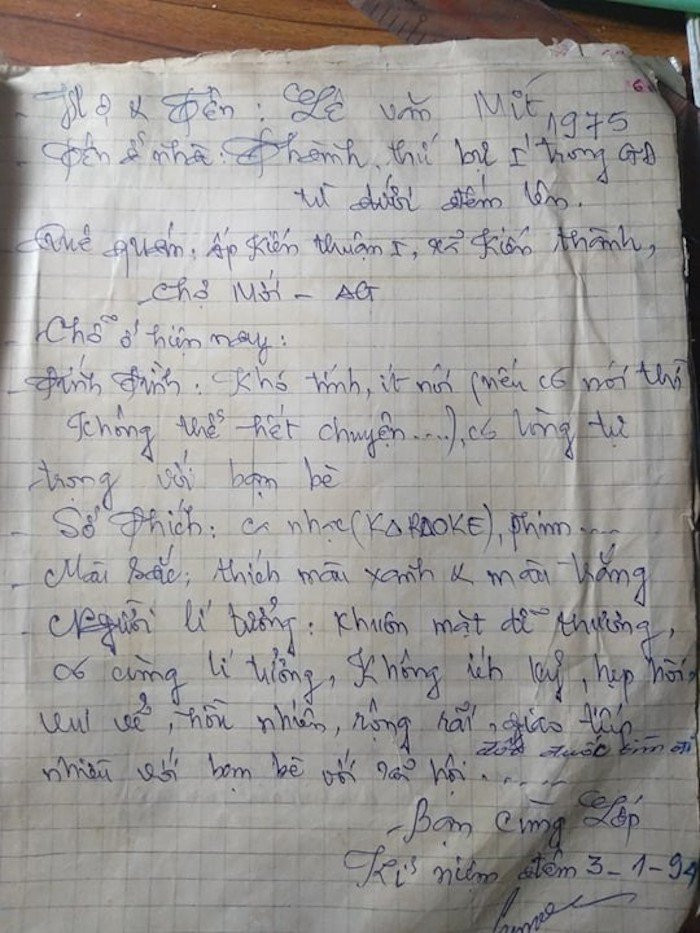 - Họ & Tên : Lê văn Mít 1975
- Tên ở nhà : Thành, thứ bự I trong GĐ
từ dưới đếm lên.
- Quê quán, ấp kiến thuận I, xã kiến thành,
Chợ Mới - AG
- Chỗ ở hiện nay :
- Tính Tình : Khó tính, ít nói (nếu có nói thì
không thể hết chuyện....), có lòng tự
trọng với bạn bè
- Sở Thích : ca nhạc (KARAOKE), phim ....
- Màu sắc ; thích màu xanh & màu trắng
- Người lí tưởng : khuôn mặt dễ thương,
có cùng lí tưởng, không ích kỷ, hẹp hòi,
vui vẻ, hồn nhiên, rộng rãi, giao tiếp
nhiều với bạn bè với xã hội ......
- Bạn cùng Lớp
Kỉ niệm đêm 3-1-94